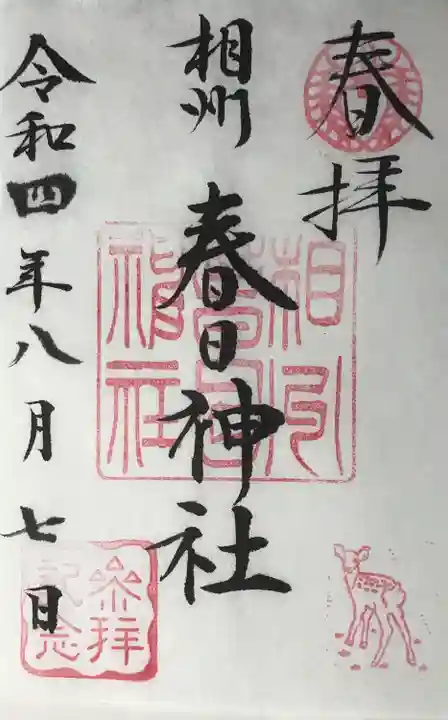 春拝
相州
春日神社
相州春日神社
令和四年八月七日
参拝記念